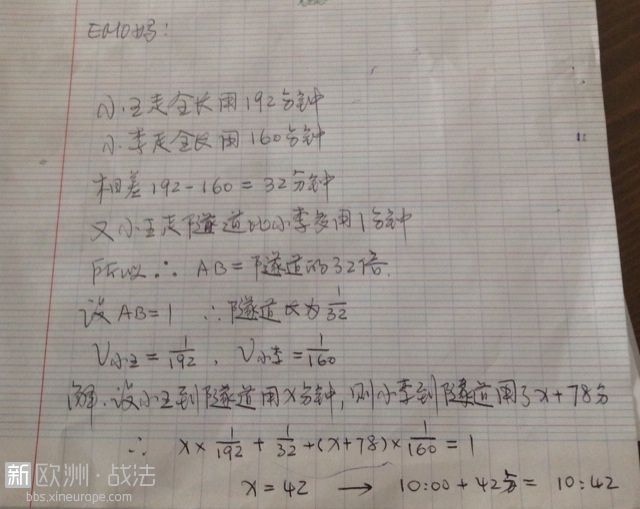 EMO妈:
小王走全长用192分钟
小李走全长用160分钟
相差192-160=32分钟
又小王走隧道比小李多用1分钟
所以∴ AB=隧道的32倍.
设AB=1 ∴隧道长为1/32
V小王=1/192, V小李=1/160
解.设小王到隧道用X分钟,则小李到隧道用了x+78分
∴ x×1/192+1/32+(x+78)×1/160=1
x=42 → 10:00+42分=10:42
新欧洲·战法
bbs.xineurope.com